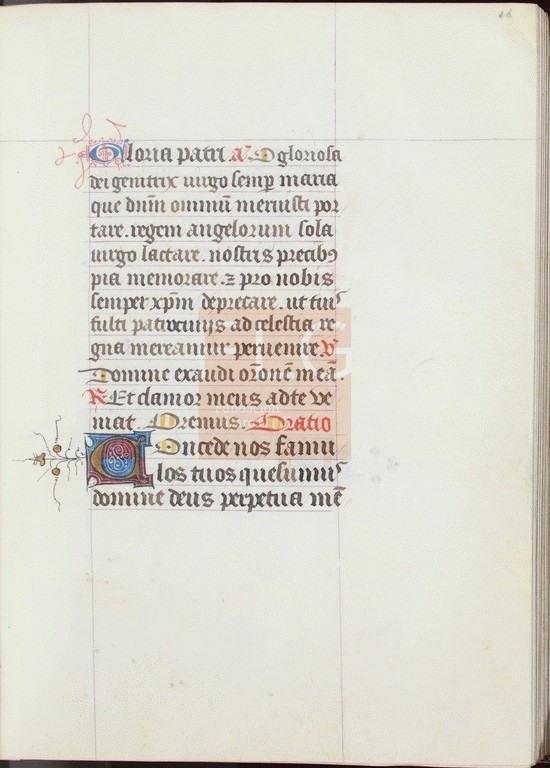 26
Gloria patri. a̅ O gloriosa
dei genitrix uirgo semp̲ maria
que dn̄m omniū meruisti por
tare. regem angelorum sola
uirgo lactare. nostris precibꝰ
pia memorare. ⁊ pro nobis
semper xp̄m deprecare. ut tuis
fulti patrociniis ad celestia re
gna mereamur peruenire. V̅
Domine exaudi or̄onē meā.
R̅ Et clamor meus ad te ve
niat. Oremus. Oratio
Concede nos famu
los tuos quesumus
domine deus perpetua mē